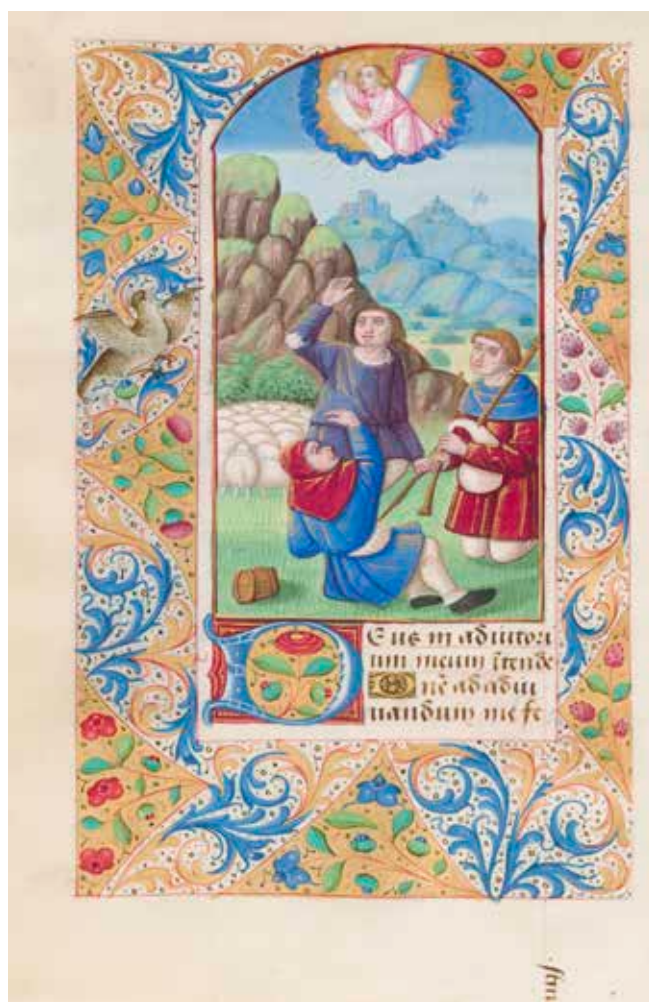 Deus in adiutori
um meum ītende
Dñe ad adiu
uandum me fe